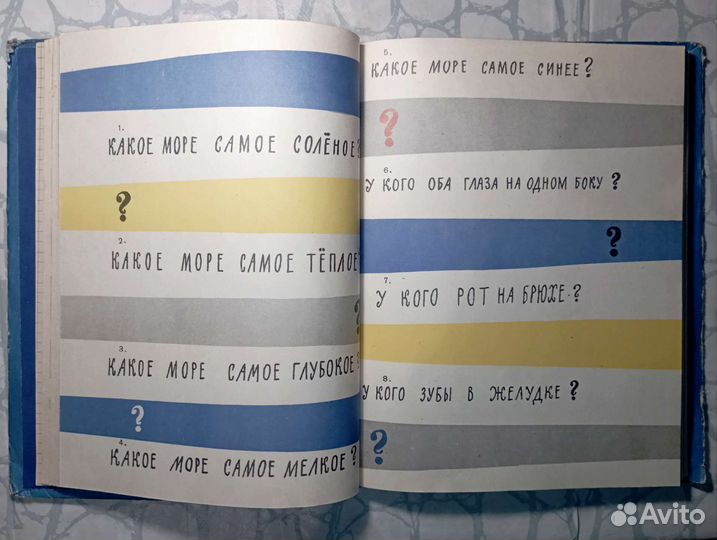 1.
КАКОЕ МОРЕ САМОЕ СОЛЁНОЕ?
?
2.
КАКОЕ МОРЕ САМОЕ ТЁПЛОЕ?
?
3.
КАКОЕ МОРЕ САМОЕ ГЛУБОКОЕ?
?
4.
КАКОЕ МОРЕ САМОЕ МЕЛКОЕ?
5.
КАКОЕ МОРЕ САМОЕ СИНЕЕ?
?
6.
У КОГО ОБА ГЛАЗА НА ОДНОМ БОКУ?
?
7.
У КОГО РОТ НА БРЮХЕ?
8.
У КОГО ЗУБЫ В ЖЕЛУДКЕ?
?
Avito